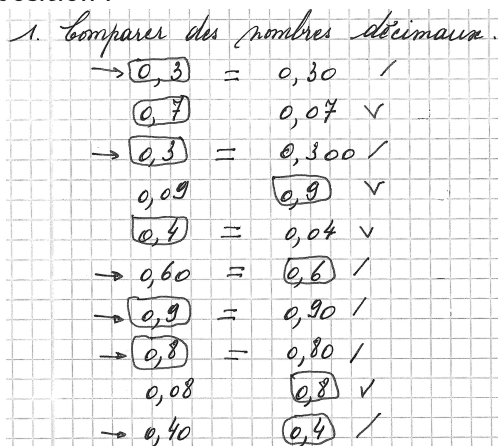 1. Comparer des nombres décimaux.
→ 0,3 = 0,30 /
0,7 0,07 v
→ 0,3 = 0,300 /
0,09 0,9 v
0,4 = 0,04 v
→ 0,60 = 0,6 /
→ 0,9 = 0,90 /
→ 0,8 = 0,80 /
0,08 0,8 v
→ 0,40 0,4 /